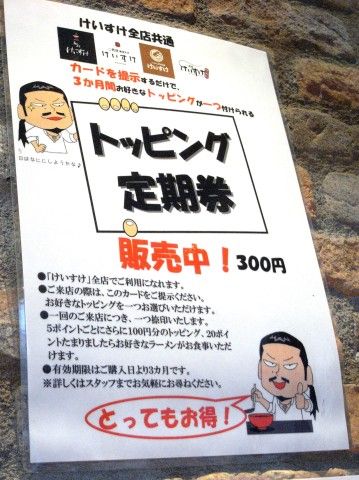 けいすけ全店共通
けいすけ
けいすけ
けいすけ
カードを提示するだけで、
3か月間お好きなトッピングが一つ付けられる
トッピング
定期券
販売中！300円
●「けいすけ」全店でご利用になれます。
●ご来店の際は、このカードをご提示ください。
お好きなトッピングを一つお選びいただけます。
●一回のご来店につき、一つ捺印いたします。
5ポイントごとにさらに100円分のトッピング、20ポ
イントたまりましたらお好きなラーメンがお食事いただ
けます。
●有効期限はご購入日より3カ月です。
※詳しくはスタッフまでお気軽にお尋ねください。
とってもお得！